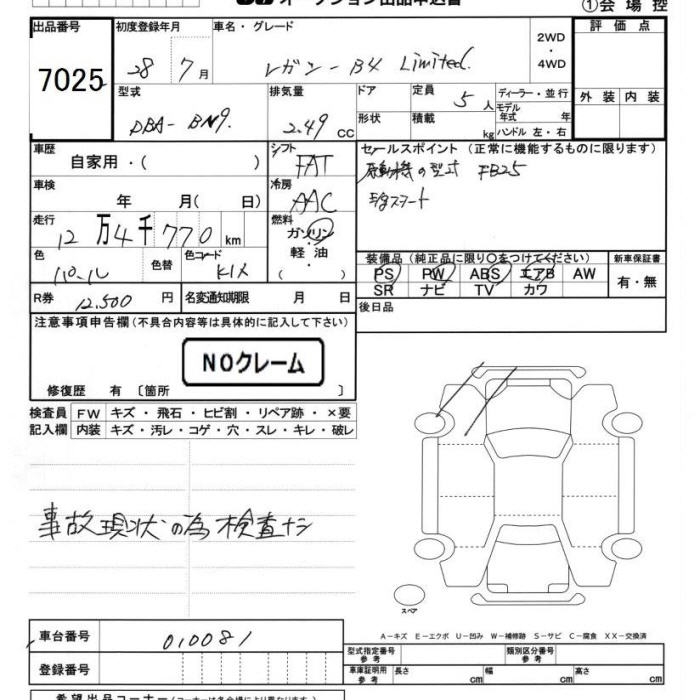 オークション出品申込書
①会場控
出品番号 初度登録年月 車名・グレード 評価点
7025 28 7月 レガシーB4 Limited. 2WD・4WD
外装 内装
型式 排気量 ドア 定員 ディーラー・並行
DBA- BN9. 2.49 CC 5人 モデル年式 年
形状 積載 kg ハンドル 左・右
車歴 シフト セールスポイント (正常に機能するものに限ります)
自家用・( ) FAT 原動機の型式 FB25
車検 冷房
年 月( 日) AAC
走行 燃料
12万4千770km ガソリン・軽油( )
色 色替 色コード 装備品(純正品に限り〇をつけてください) 新車保証書
パール K1X PS PW ABS エアB AW 有・無
SR ナビ TV カワ
R券 12,500円 名変通知期限 月 日 後日品
注意事項申告欄(不具合内容等は具体的に記入して下さい)
NOクレーム
修復歴 有 〔箇所 〕
検査員 FW キズ・飛石・ヒビ割・リペア跡・×要
記入欄 内装 キズ・汚レ・コゲ・穴・スレ・キレ・破レ
事故現状の為検査ナシ
スペア
A−キズ E−エクボ U−凹み W−補修跡 S−サビ C−腐食 XX−交換済
車台番号 010081 型式指定番号 参考 類別区分番号 参考
登録番号 車庫証明用 参考 長さ cm 幅 cm 高さ cm
希望出品コーナー